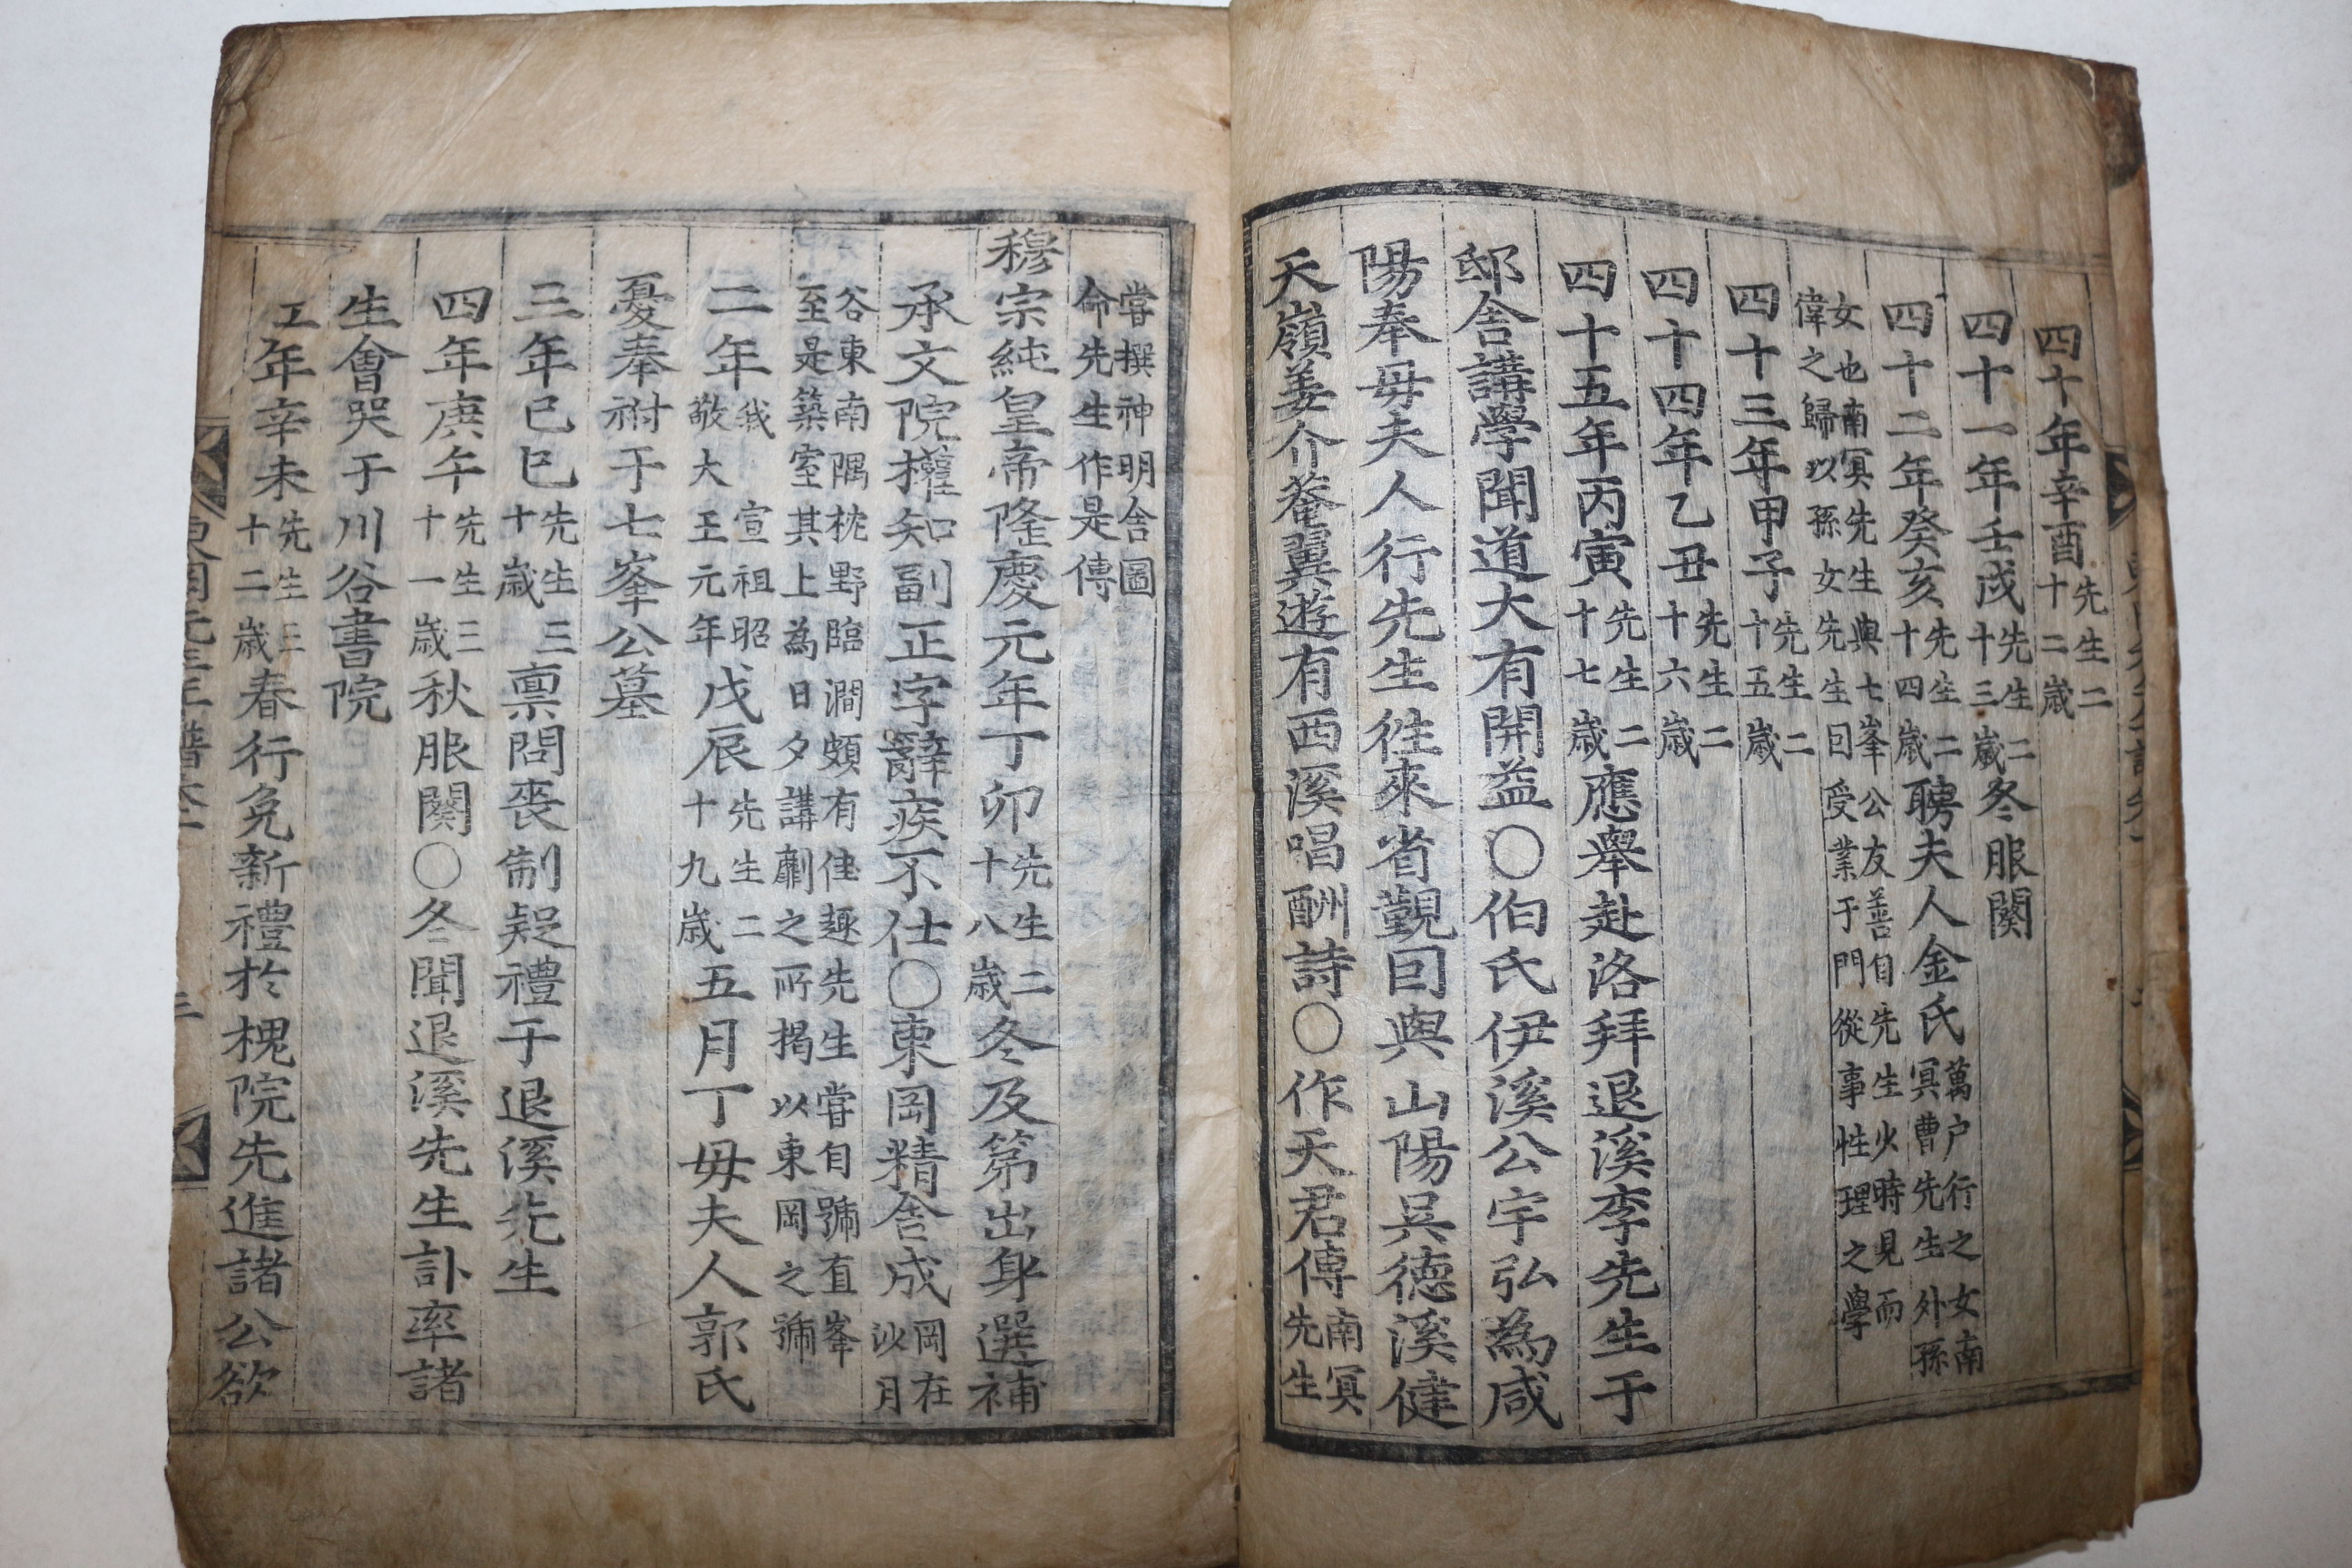 四十年辛酉先生二十二歲
四十一年壬戌先生二十三歲冬服闋
四十二年癸亥先生二十四歲聘夫人金氏萬戶行之女南冥曹先生外孫
女也南冥先生與七峯公友善自先生少時見而偉之歸以孫女先生曰受業于門從事性理之學
四十三年甲子先生二十五歲
四十四年乙丑先生二十六歲
四十五年丙寅先生二十七歲應舉赴洛拜退溪李先生于
邸舍講學聞道大有開益〇伯氏伊溪公宇弘為咸
陽奉母夫人行先生往來省觀回與山陽吳德溪健
天嶺姜介菴翼遊有西溪唱酬詩〇作天君傳南冥先生
嘗撰神明舍圖命先生作是傳
穆宗純皇帝隆慶元年丁卯先生二十八歲冬及第出身選補
承文院權知副正字辭疾不仕〇東岡精舍成岡在沙月
谷東南隅枕野臨澗頗有佳趣先生嘗自號直峯至是築室其上為日夕講劘之所揭以東岡之號
二年我 宣祖昭敬大王元年戊辰先生二十九歲五月丁母夫人郭氏
憂奉祔于七峯公墓
三年己巳先生三十歲稟問喪制疑禮于退溪先生
四年庚午先生三十一歲秋服闋〇冬聞退溪先生訃率諸
生會哭于川谷書院
五年辛未先生三十二歲春行免新禮於槐院先進諸公欲